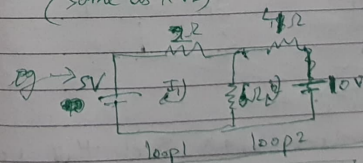 2Ω 4Ω
eg → 5V I₁ 6Ω I₂ 10V
loop1 loop2